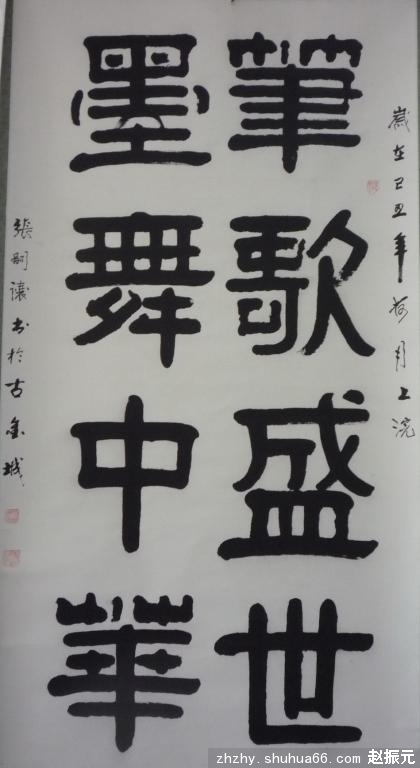 歲在己丑年荷月上浣
筆歌盛世
墨舞中華
張嗣讓书於古金城
zhzhy.shuhua66.com 赵振元